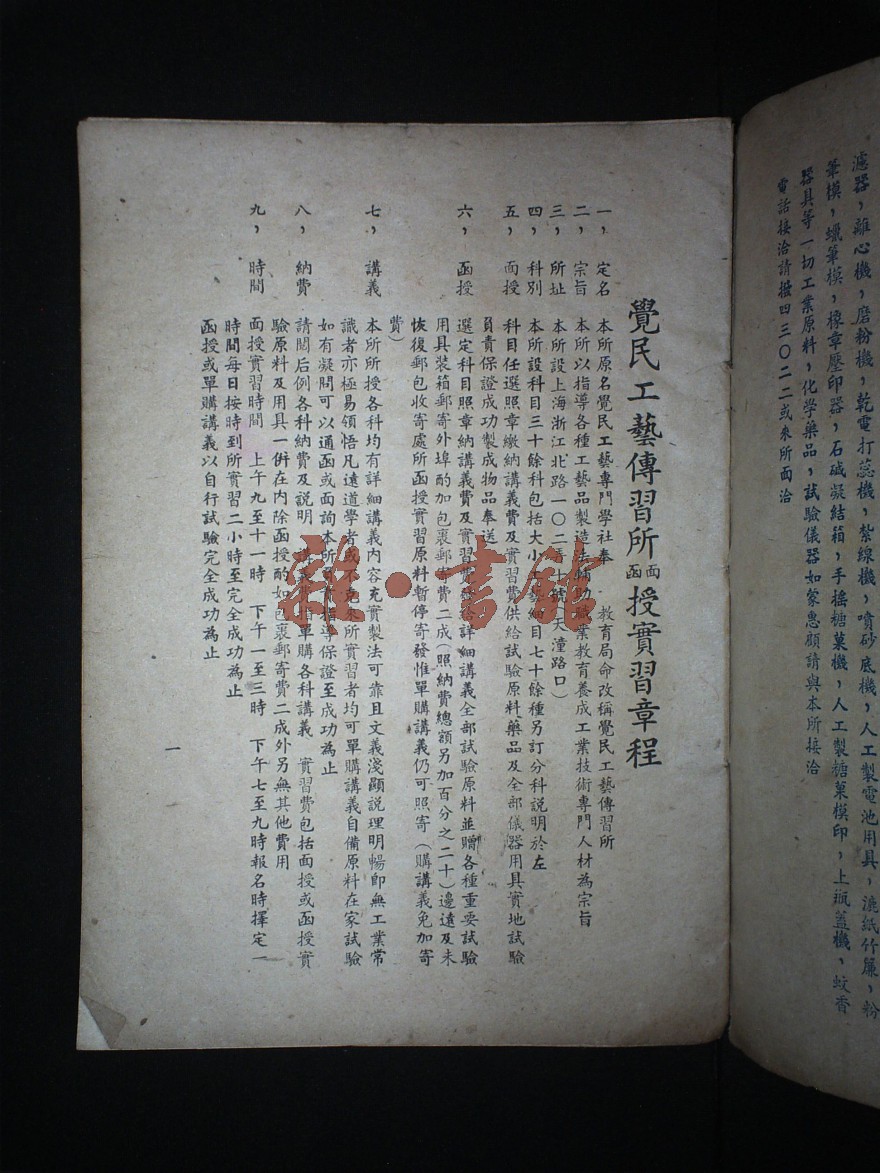 濾器，離心機，磨粉機，乾電打蕊機，紮線機，噴砂底機，人工製電池用具，漉紙竹簾，粉
筆模，蠟筆模，橡章壓印器，石碱凝結箱，手搖糖菓機，人工製糖菓模印，上瓶蓋機，蚊香
器具等一切工業原料，化學藥品，試驗儀器如蒙惠顧請與本所接洽
電話接洽請撥四三〇二二或來所面洽
覺民工藝傳習所面函授實習章程
一，定名　本所原名覺民工藝專門學社奉　教育局命改稱覺民工藝傳習所
二，宗旨　本所以指導各種工藝品製造法輔助職業教育養成工業技術專門人材為宗旨
三，所址　本所設上海浙江北路一〇二弄十號（天潼路口）
四，科別　本所設科目三十餘科包括大小工藝細目七十餘種另訂分科說明於左
五，面授　科目任選照章繳納講義費及實習費供給試驗原料藥品及全部儀器用具實地試驗
負責保證成功製成物品奉送
六，函授　選定科目照章納講義費及實習費發給詳細講義全部試驗原料並贈各種重要試驗
用具裝箱郵寄外埠酌加包裹郵寄費二成（照納費總額另加百分之二十）邊遠及未
恢復郵包收寄處所函授實習原料暫停寄發惟單購講義仍可照寄（購講義免加寄
費）
七，講義　本所所授各科均有詳細講義內容充實製法可靠且文義淺顯說理明暢即無工業常
識者亦極易領悟凡遠道學者或不克來所實習者均可單購講義自備原料在家試驗
如有疑問可以通函或面詢本所負責指導保證至成功為止
八，納費　請閱后例各科納費及說明　講義費指單購各科講義　實習費包括面授或函授實
驗原料及用具一併在內除函授酌加包裹郵寄費二成外另無其他費用
九，時間　面授實習時間　上午九至十一時　下午一至三時　下午七至九時報名時擇定一
時間每日按時到所實習二小時至完全成功為止
函授或單購講義以自行試驗完全成功為止
一
雜·書館